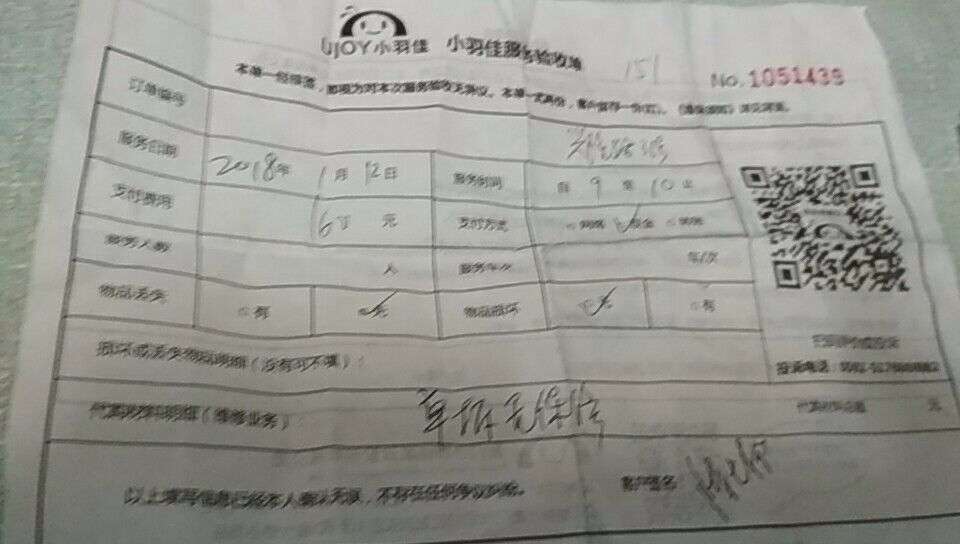 UJOY小羽佳 小羽佳服务验收单
151 No. 1051439
本单一经签署，即视为对本次服务验收无异议。本单一式两份，客户留存一份
订单编号
服务日期 2018年 1月 12日 服务时间 自 9 至 10 止
支付费用 元 支付方式 现金
服务人数 人 服务车次 车/次
物品丢失 有 无 物品损坏 无 有
损坏或丢失物品明细（没有可不填）：
投诉电话：
代购材料明细（维修业务）： 单拆无保修 代购材料总额 元
以上填写信息已经本人确认无误，不存在任何争议纠纷。 客户签名：